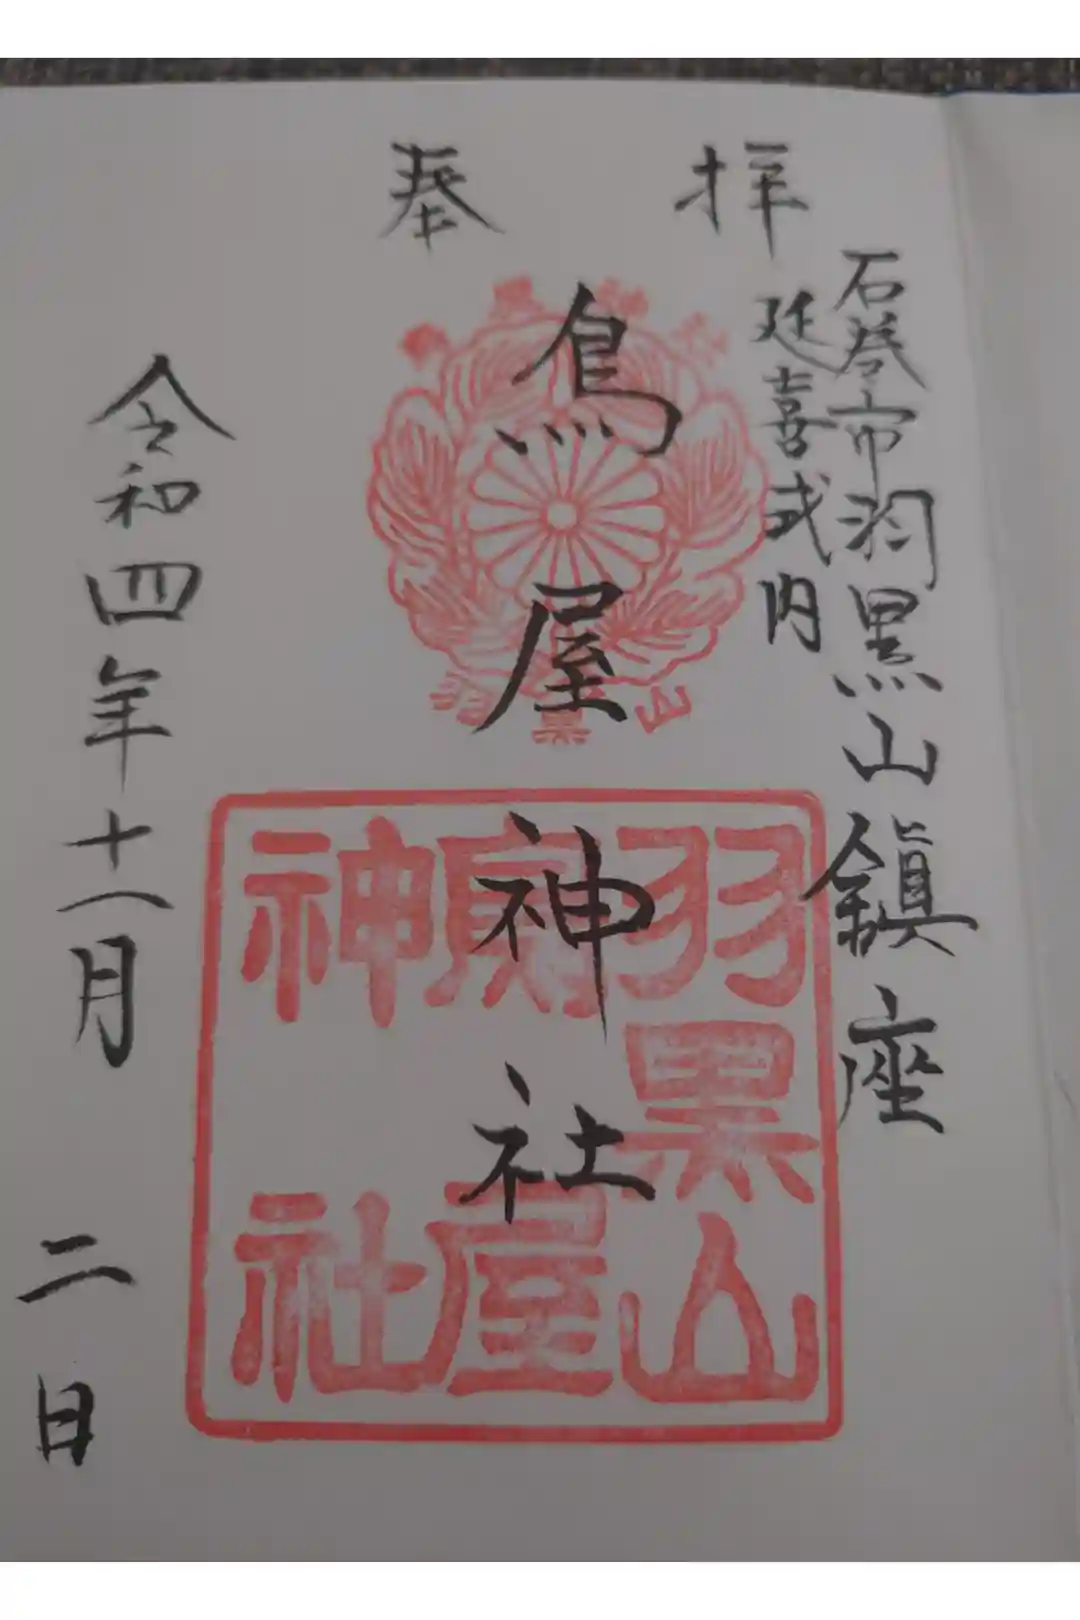 奉拝
石巻市羽黒山鎮座
延喜式内
鳥屋神社
令和四年十一月二日
羽黒山
羽黒山
鳥屋
神社